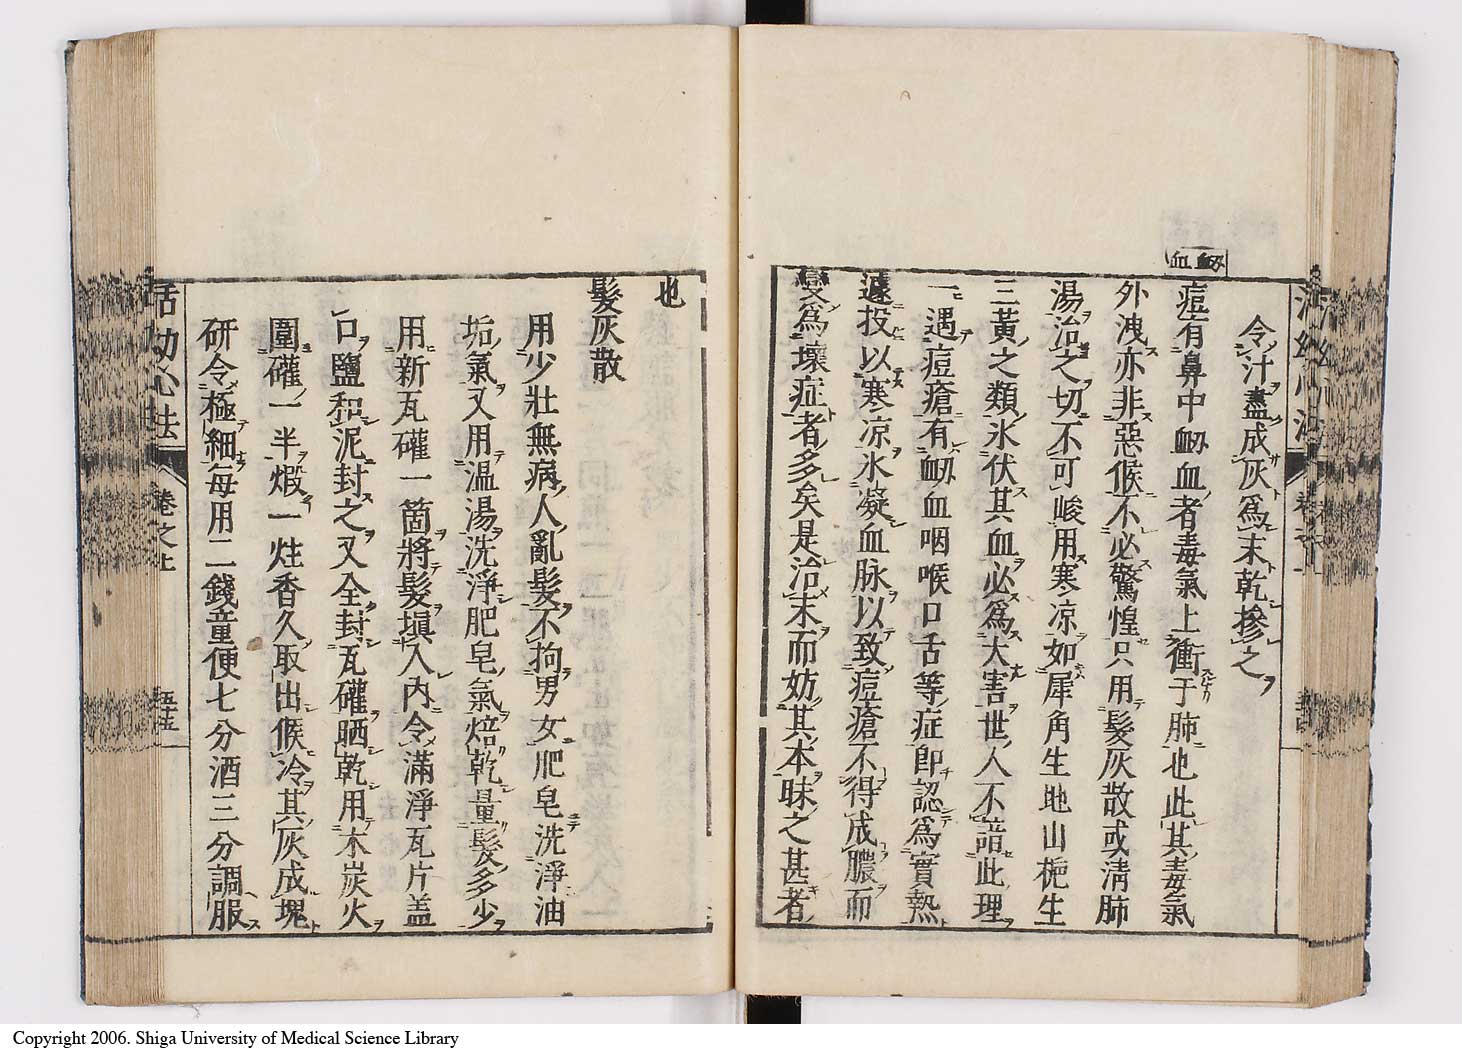 衂血
令汁盡成灰為末乾摻之
痘有鼻中衂血者毒氣上衝于肺也此其毒氣
外洩亦非惡候不必驚惶只用髮灰散或清肺
湯治之切不可峻用寒凉如犀角生地山梔生
三黃之類氷伏其血必為大害世人不諳此理
一遇痘瘡有衂血咽喉口舌等症即認為實熱
遽投以寒凉氷凝血脉以致痘瘡不得成膿而
變為壞症者多矣是治末而妨其本昧之甚者
也
髮灰散
用少壯無病人亂髮不拘男女肥皂洗淨油
垢氣又用温湯洗淨肥皂氣焙乾量髮多少
用新瓦礶一箇將髮塡入内令滿淨瓦片盖
口鹽和泥封之又全封瓦礶晒乾用木炭火
圍礶一半煅一炷香久取出候冷其灰成塊
研令極細每用二錢童便七分酒三分調服
活幼心法
卷之上
Copyright 2006. Shiga University of Medical Science Library